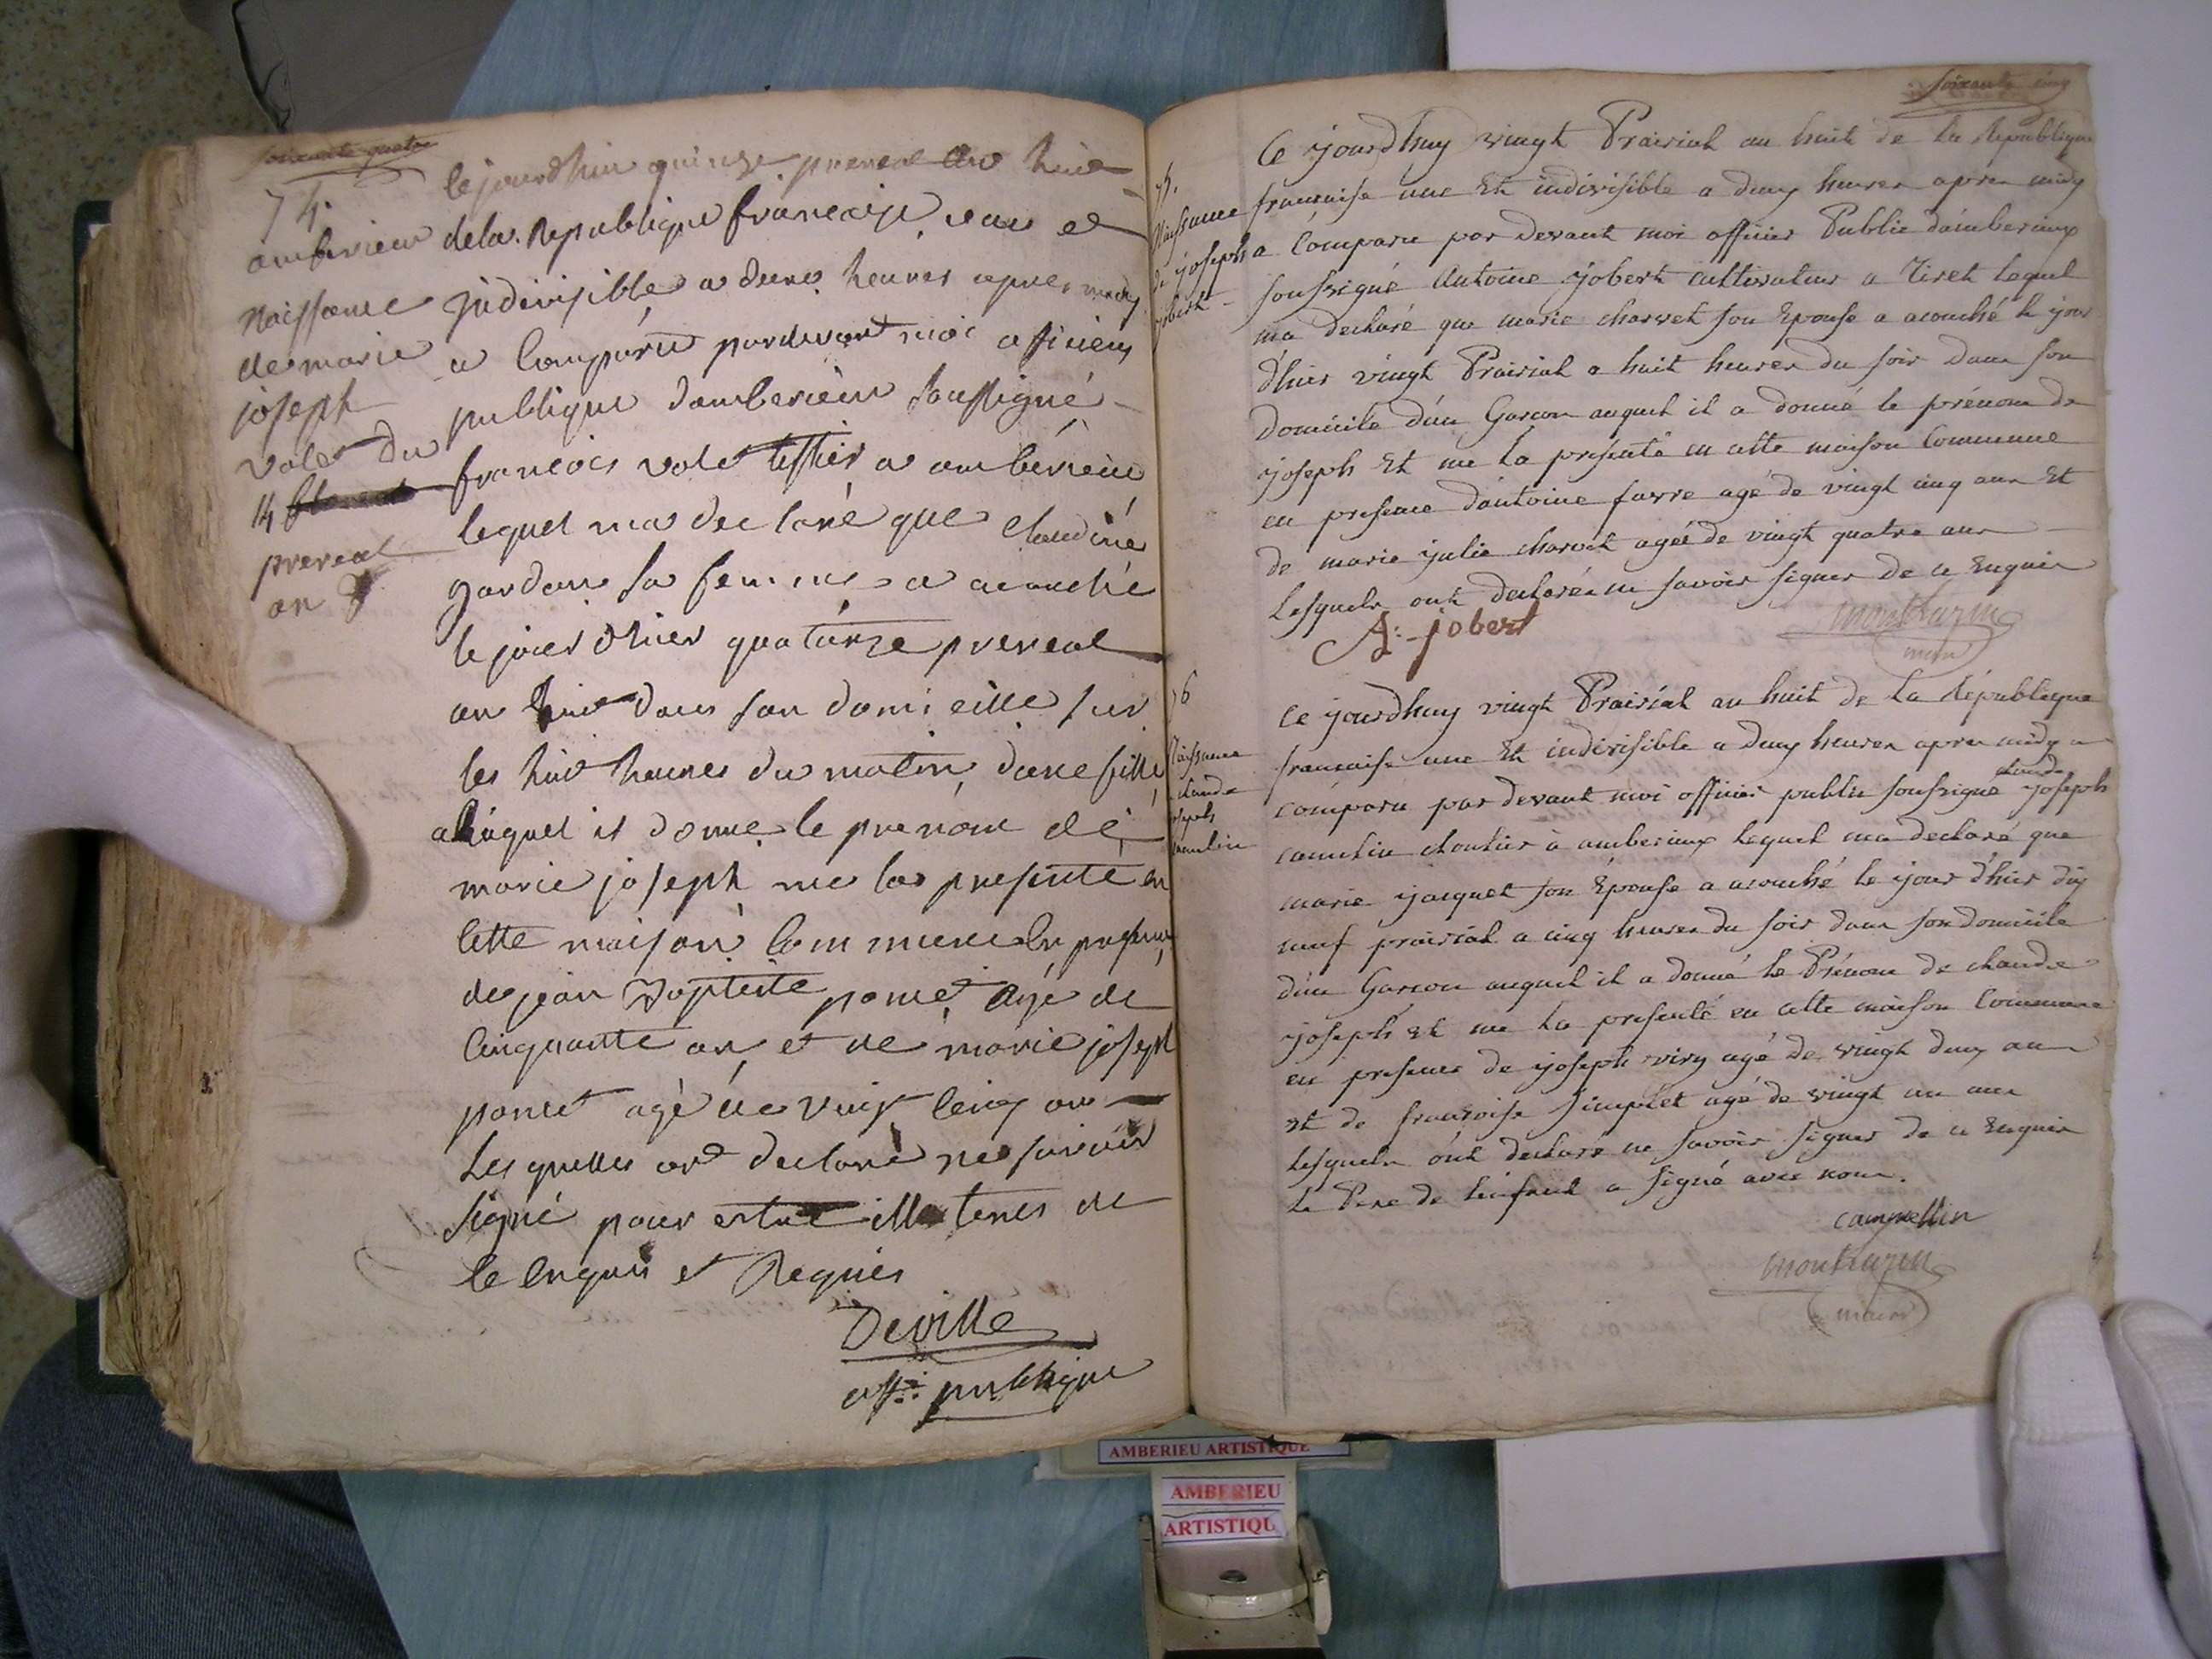 soixante quatre
74.
amberieu
naissance
de marie
joseph
volet du
14
prereal
an 8
Cejourdhui quinze prereal an huit
de la Republique francaise une et
Jndivisible a deux heures apres midy
a Comparu pardevant moi officiers
publique damberieu Soussigné
francois volet tissier a amberieu
lequel ma declaré que Claudine
jordan sa femme a acouché
le jour d'hier quatorze prereal
an huit dans son domicille sur
les huit heures du matin dune fille
a laquel il donne le prenom de
marie joseph me la presenté en
Cette maison Commune En presence
de jean Baptiste ponet agé de
Cinquante an et de marie joseph
ponet agé de vingt Cinq an
Les quelles ont declaré ne savoir
signé pour estre illetteres de
Ce Enquis et Requis
Deville
off: publique
soixante cinq
75.
Naissance
de joseph
jobert
Ce jourdhuy vingt Prairial an huit de la Republique
francaise une Et indivisible a deux heures apres midy
a Comparu par devant moi officier Public damberieux
soussigné Antoine jobert cultivateur a Tiret lequel
ma declaré que marie charvet son Epouse a acouché le jour
d'hier vingt Prairial a huit heures du soir dans son
Domicile d'un Garcon auquel il a donné le prénom de
joseph Et me l'a présenté en cette maison Commune
en presence d'antoine favre agé de vingt cinq ans Et
de marie julie charvet ageé de vingt quatre ans
Lesquels ont declarés ne savoir signer de ce Enquis
A: jobert
montlazin
maire
76
Naissance
claude
joseph
Camelin
Ce jourdhuy vingt Prairial an huit de la République
francaise une Et indivisible a deux heures apres midy a
claude
comparu par devant moi officier public soussigné joseph
camelin cloutier à amberieux lequel ma declaré que
marie jacquet son Épouse a acouché le jour d'hier dix
neuf prairial a cinq heures du soir dans son domicile
d'un Garcon auquel il a donné le Prénom de claude
joseph et me la presenté en cette maison Commune
en presence de joseph viry agé de vingt deux ans
et de francoise simplet agé de vingt un ans
lesquels ont declaré ne savoir signer de ce Enquis
Le Pere de lenfant a signé avec nous.
campellin
montlazin
maire
AMBERIEU ARTISTIQUE
AMBERIEU
ARTISTIQU